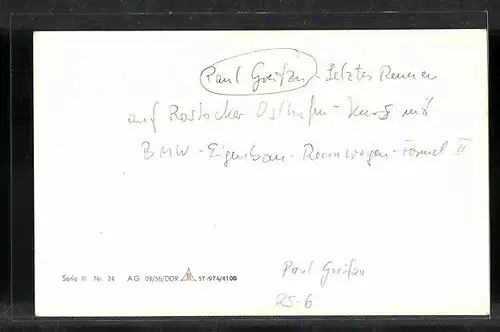 Paul Greifzu - Letztes Rennen
auf Rostocker Osthafen - Kurs mit
BMW - Eigenbau - Rennwagen - Formel II
Serie III Nr. 24 AG 09/56/DDR ST-974/4108
Paul Greifzu
25-6